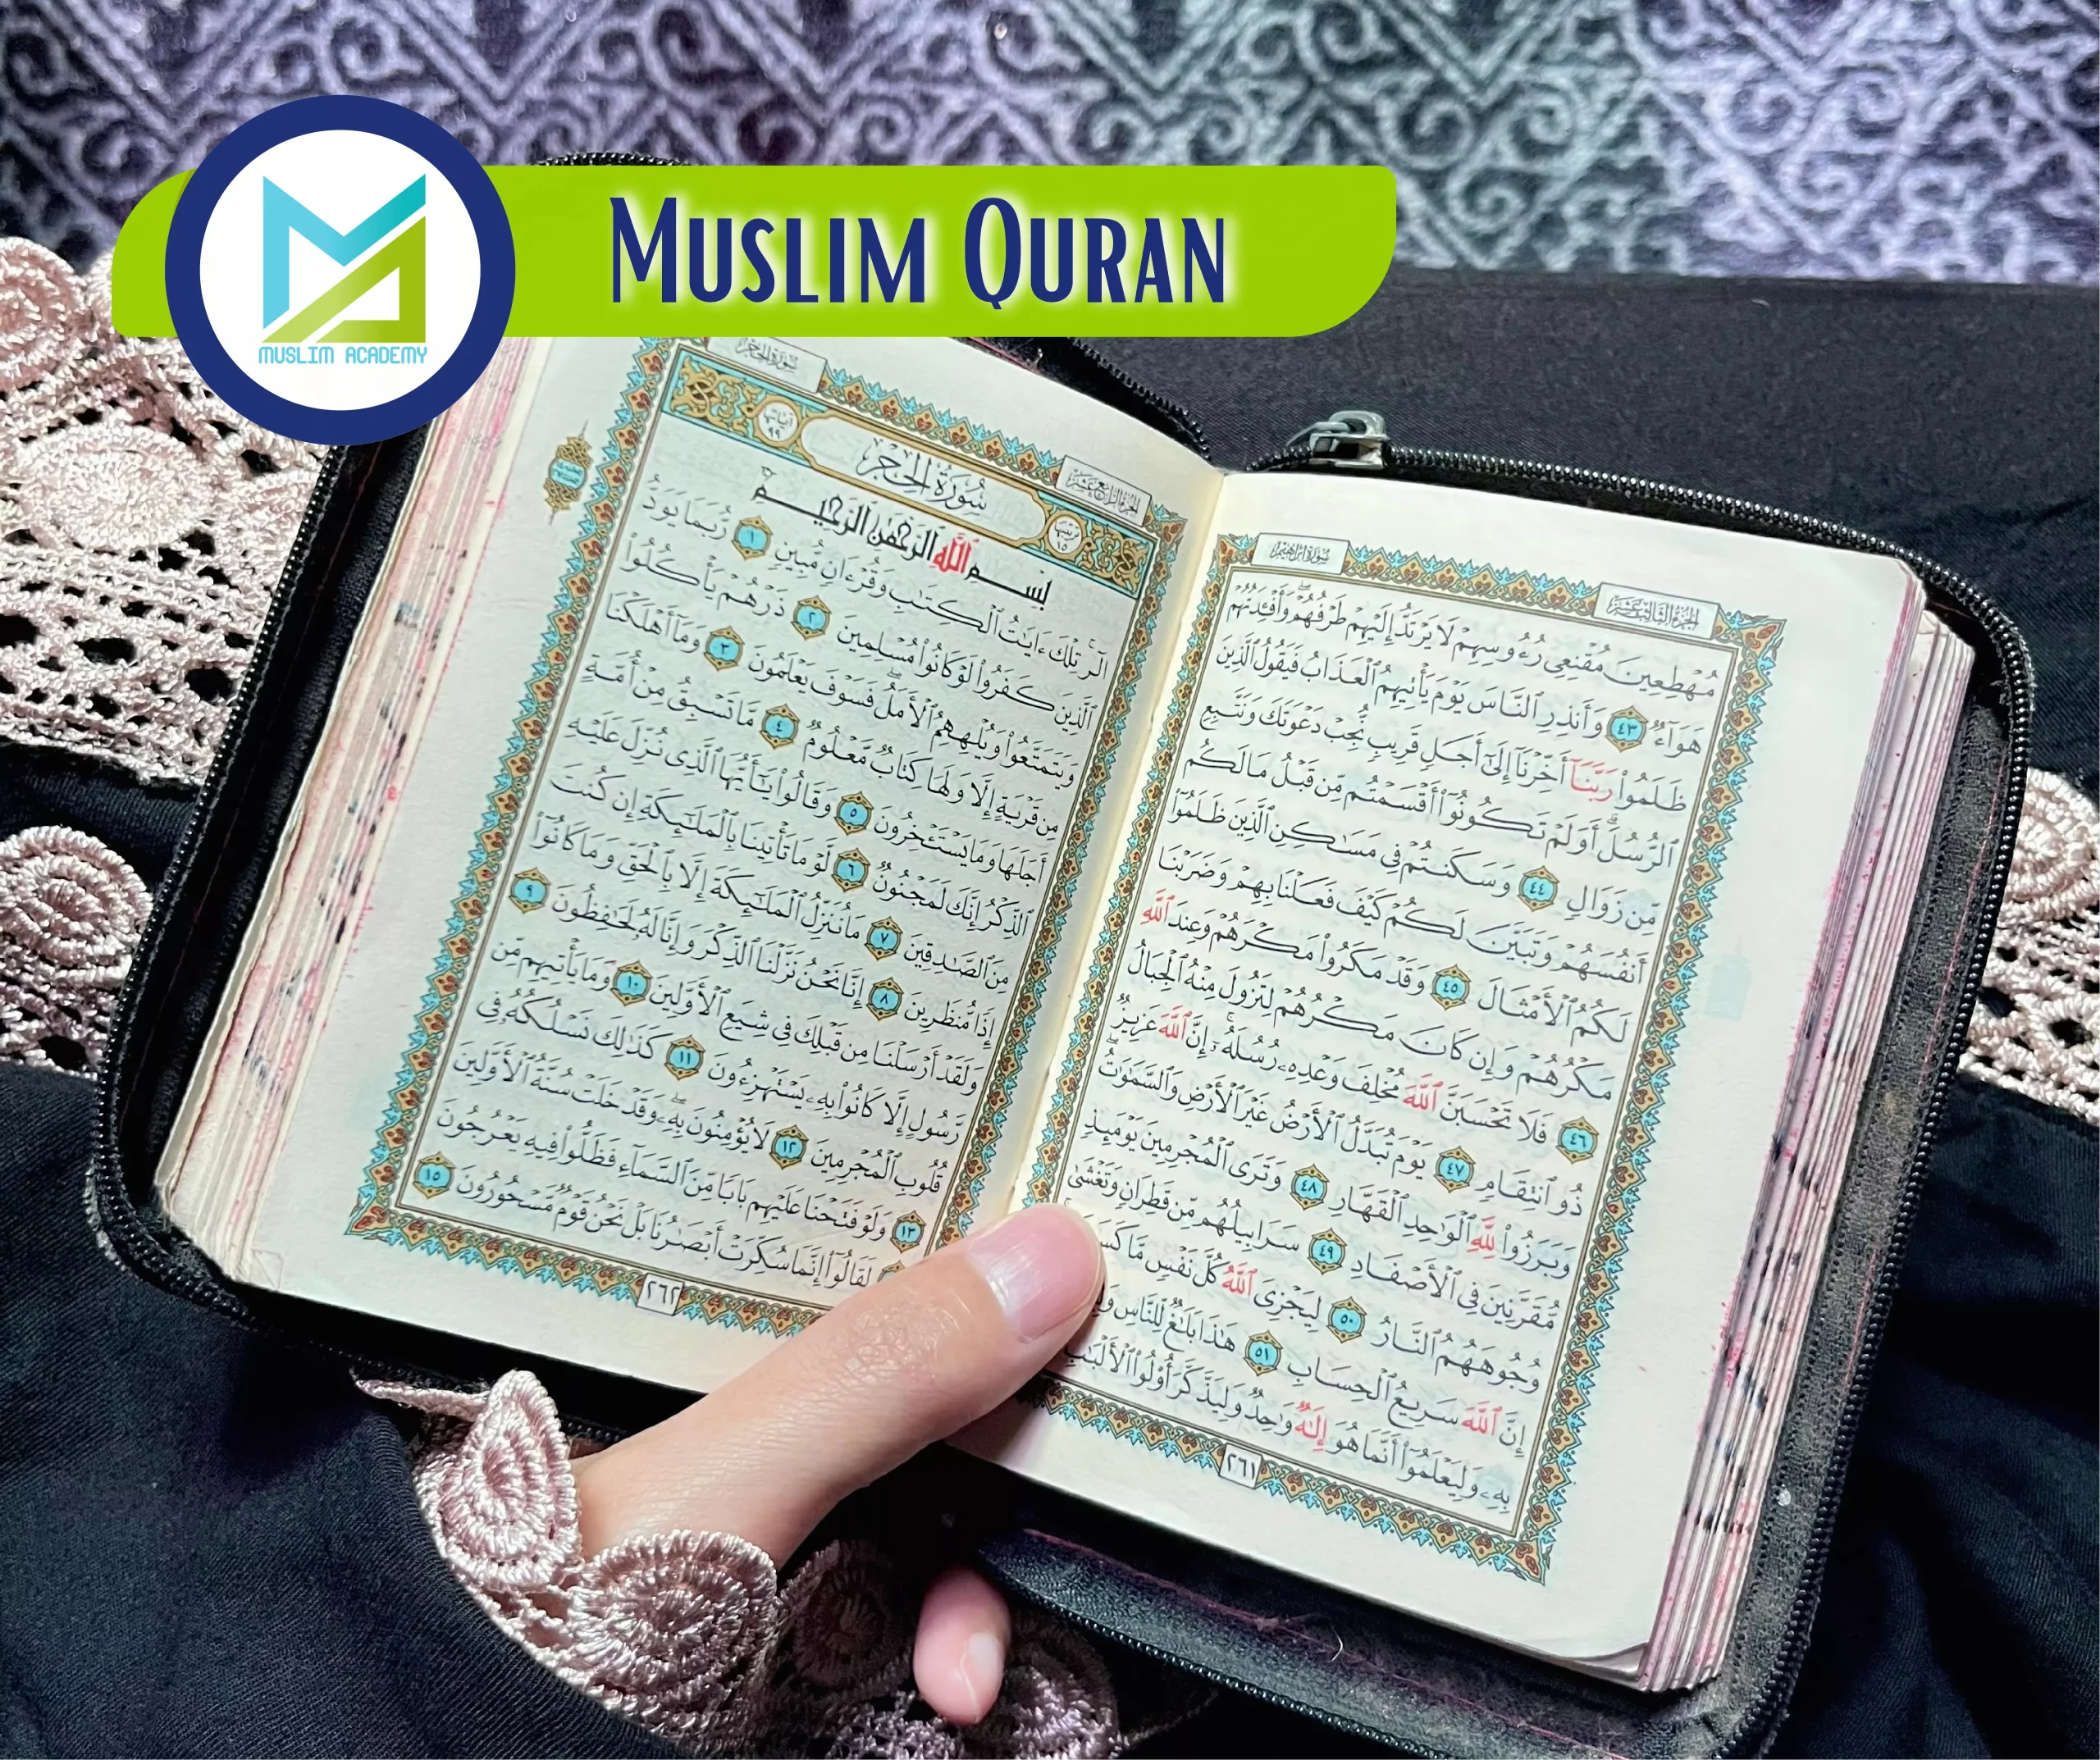 MUSLIM QURAN
MUSLIM ACADEMY
سُورَةُ إِبْرَاهِيمَ
الجُزْءُ الثَّالِثَ عَشَرَ
مُهْطِعِينَ مُقْنِعِى رُءُوسِهِمْ لَا يَرْتَدُّ إِلَيْهِمْ طَرْفُهُمْ ۖ وَأَفْـِٔدَتُهُمْ
هَوَآءٌ ٤٣ وَأَنذِرِ ٱلنَّاسَ يَوْمَ يَأْتِيهِمُ ٱلْعَذَابُ فَيَقُولُ ٱلَّذِينَ
ظَلَمُوا۟ رَبَّنَآ أَخِّرْنَآ إِلَىٰٓ أَجَلٍ قَرِيبٍ نُّجِبْ دَعْوَتَكَ وَنَتَّبِعِ
ٱلرُّسُلَ ۗ أَوَلَمْ تَكُونُوٓا۟ أَقْسَمْتُم مِّن قَبْلُ مَا لَكُم
مِّن زَوَالٍ ٤٤ وَسَكَنتُمْ فِى مَسَٰكِنِ ٱلَّذِينَ ظَلَمُوٓا۟
أَنفُسَهُمْ وَتَبَيَّنَ لَكُمْ كَيْفَ فَعَلْنَا بِهِمْ وَضَرَبْنَا
لَكُمُ ٱلْأَمْثَالَ ٤٥ وَقَدْ مَكَرُوا۟ مَكْرَهُمْ وَعِندَ ٱللَّهِ
مَكْرُهُمْ وَإِن كَانَ مَكْرُهُمْ لِتَزُولَ مِنْهُ ٱلْجِبَالُ
٤٦ فَلَا تَحْسَبَنَّ ٱللَّهَ مُخْلِفَ وَعْدِهِۦ رُسُلَهُۥٓ ۗ إِنَّ ٱللَّهَ عَزِيزٌ
ذُو ٱنتِقَامٍ ٤٧ يَوْمَ تُبَدَّلُ ٱلْأَرْضُ غَيْرَ ٱلْأَرْضِ وَٱلسَّمَٰوَٰتُ ۖ
وَبَرَزُوا۟ لِلَّهِ ٱلْوَٰحِدِ ٱلْقَهَّارِ ٤٨ وَتَرَى ٱلْمُجْرِمِينَ يَوْمَئِذٍ
مُّقَرَّنِينَ فِى ٱلْأَصْفَادِ ٤٩ سَرَابِيلُهُم مِّن قَطِرَانٍ وَتَغْشَىٰ
وُجُوهَهُمُ ٱلنَّارُ ٥٠ لِيَجْزِىَ ٱللَّهُ كُلَّ نَفْسٍ مَّا
إِنَّ ٱللَّهَ سَرِيعُ ٱلْحِسَابِ ٥١ هَٰذَا بَلَٰغٌ لِّلنَّاسِ
بِهِۦ وَلِيَعْلَمُوٓا۟ أَنَّمَا هُوَ إِلَٰهٌ وَٰحِدٌ وَلِيَذَّكَّرَ أُو۟لُوا۟ ٱلْأَلْبَٰبِ
٢٦١
سُورَةُ الحِجْرِ
الجُزْءُ الرَّابِعَ عَشَرَ
ترتيبها ١٥
سُورَةُ الحِجْرِ
آياتها ٩٩
بِسْمِ ٱللَّهِ ٱلرَّحْمَٰنِ ٱلرَّحِيمِ
الٓر ۚ تِلْكَ ءَايَٰتُ ٱلْكِتَٰبِ وَقُرْءَانٍ مُّبِينٍ ١ رُّبَمَا يَوَدُّ
ٱلَّذِينَ كَفَرُوا۟ لَوْ كَانُوا۟ مُسْلِمِينَ ٢ ذَرْهُمْ يَأْكُلُوا۟
وَيَتَمَتَّعُوا۟ وَيُلْهِهِمُ ٱلْأَمَلُ ۖ فَسَوْفَ يَعْلَمُونَ ٣ وَمَآ أَهْلَكْنَا
مِن قَرْيَةٍ إِلَّا وَلَهَا كِتَابٌ مَّعْلُومٌ ٤ مَّا تَسْبِقُ مِنْ أُمَّةٍ
أَجَلَهَا وَمَا يَسْتَـْٔخِرُونَ ٥ وَقَالُوا۟ يَٰٓأَيُّهَا ٱلَّذِى نُزِّلَ عَلَيْهِ
ٱلذِّكْرُ إِنَّكَ لَمَجْنُونٌ ٦ لَّوْ مَا تَأْتِينَا بِٱلْمَلَٰٓئِكَةِ إِن كُنتَ
مِنَ ٱلصَّٰدِقِينَ ٧ مَا نُنَزِّلُ ٱلْمَلَٰٓئِكَةَ إِلَّا بِٱلْحَقِّ وَمَا كَانُوٓا۟
إِذًا مُّنظَرِينَ ٨ إِنَّا نَحْنُ نَزَّلْنَا ٱلذِّكْرَ وَإِنَّا لَهُۥ لَحَٰفِظُونَ ٩
وَلَقَدْ أَرْسَلْنَا مِن قَبْلِكَ فِى شِيَعِ ٱلْأَوَّلِينَ ١٠ وَمَا يَأْتِيهِم مِّن
رَّسُولٍ إِلَّا كَانُوا۟ بِهِۦ يَسْتَهْزِءُونَ ١١ كَذَٰلِكَ نَسْلُكُهُۥ فِى
قُلُوبِ ٱلْمُجْرِمِينَ ١٢ لَا يُؤْمِنُونَ بِهِۦ ۖ وَقَدْ خَلَتْ سُنَّةُ ٱلْأَوَّلِينَ
١٣ وَلَوْ فَتَحْنَا عَلَيْهِم بَابًا مِّنَ ٱلسَّمَآءِ فَظَلُّوا۟ فِيهِ يَعْرُجُونَ
لَقَالُوٓا۟ إِنَّمَا سُكِّرَتْ أَبْصَٰرُنَا بَلْ نَحْنُ قَوْمٌ مَّسْحُورُونَ ١٥
٢٦٢